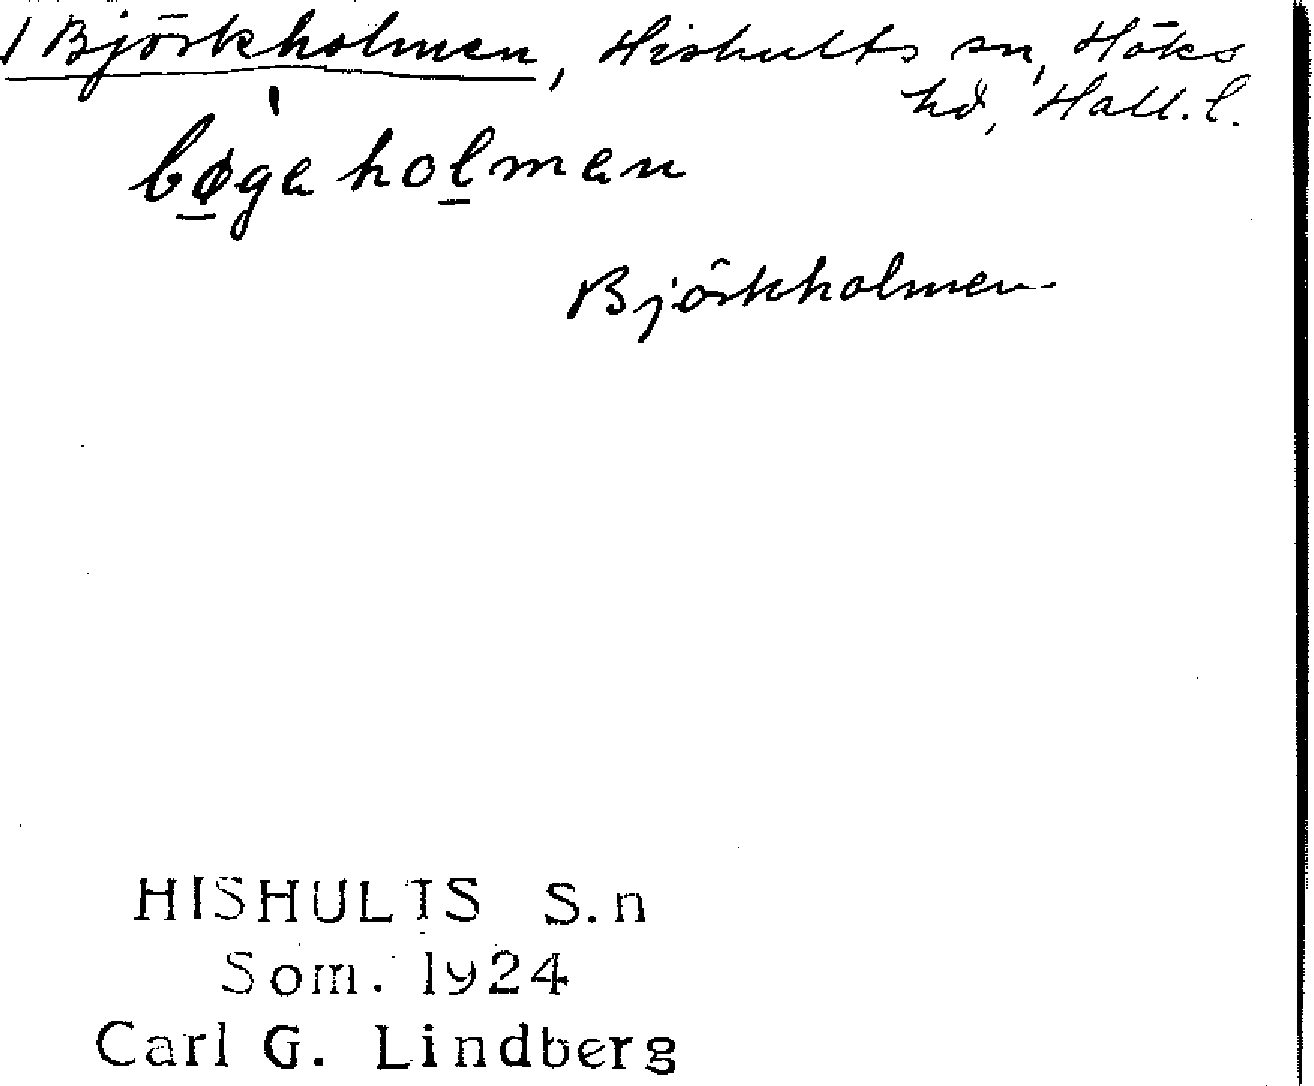 1 Björkholmen, Hishults sn, Höks
hd, Hall. l.
bøgaholman
Björkholmen
HISHULTS S.n
Som. 1924
Carl G. Lindberg